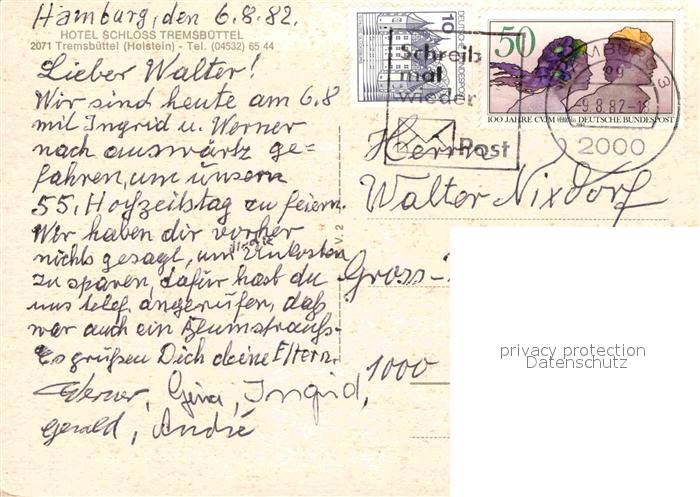 Hamburg, den 6.8.82.
HOTEL SCHLOSS TREMSBÜTTEL
2071 Tremsbüttel (Holstein) - Tel. (04532) 65 44
Lieber Walter!
Wir sind heute am 6.8
mit Ingrid u. Werner
nach auswärtz ge-
fahren, um unsern
55. Hochzeitstag zu feiern.
Wir haben dir vorher
nichts gesagt, um Unkosten
zu sparen, dafür hast du
uns telef. angerufen, daß
war auch ein Blumstrauß.
Es grüßen Dich deine Eltern.
Werner, Gina, Ingrid,
Gerald, André
10
DEUTSCHE BUNDESPOST
50
100 JAHRE CVJM
DEUTSCHE BUNDESPOST
Schreib
mal
wieder
Post
HAMBURG
-9.8.82-18
2000
Herrn
Walter Nixdorf
Gross-
1000
V. 2
privacy protection
Datenschutz